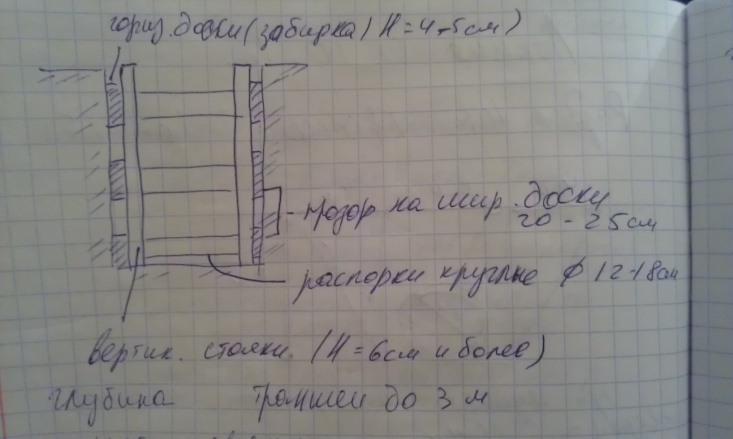 гориз. доски (забирка) H = 4-5см)
прозор на шир. доски
20 - 25см
распорки круглые ϕ 12-18см
вертик. стояки. (H = 6см и более)
глубина траншеи до 3 м